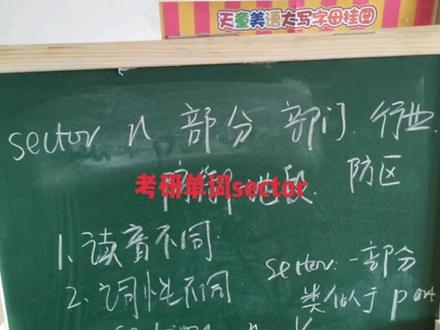 天童美语大写字母挂图
sector n 部分 部门. 行业
考研单词sector
地段. 防区
1. 读音不同
sector. 一部分
2. 词性不同
类似于 part